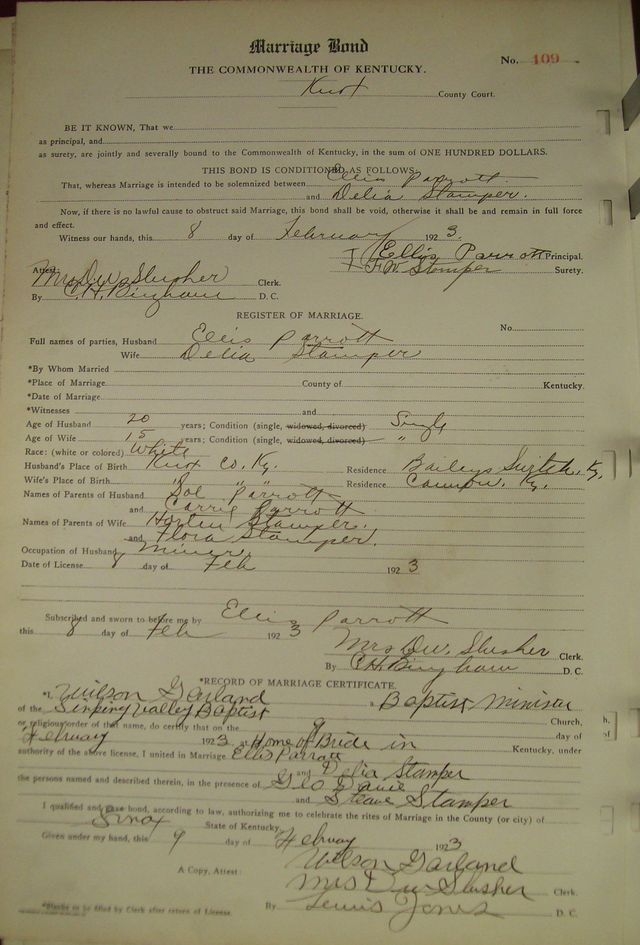 Marriage Bond
No. 109
THE COMMONWEALTH OF KENTUCKY.
Knox County Court.
BE IT KNOWN, That we
as principal, and
as surety, are jointly and severally bound to the Commonwealth of Kentucky, in the sum of ONE HUNDRED DOLLARS.
THIS BOND IS CONDITIONED AS FOLLOWS
That, whereas Marriage is intended to be solemnized between Ellis Parrott
and Delia Stamper.
Now, if there is no lawful cause to obstruct said Marriage, this bond shall be void, otherwise it shall be and remain in full force
and effect.
Witness our hands, this 8 day of February 1923.
Ellis Parrott Principal.
Attest F. W. Stamper Surety.
Mrs D.W. Slusher Clerk.
By C. H. Bingham D. C.
REGISTER OF MARRIAGE.
No.
Full names of parties, Husband Ellis Parrott
Wife Delia Stamper
*By Whom Married
*Place of Marriage County of Kentucky.
*Date of Marriage
*Witnesses and
Age of Husband 20 years; Condition (single, widowed, divorced) Single
Age of Wife 15 years; Condition (single, widowed, divorced) "
Race: (white or colored) White
Husband's Place of Birth Knox Co. Ky. Residence Baileys Switch, Ky.
Wife's Place of Birth " " " Residence Ky.
Names of Parents of Husband Sol Parrott
and Carrie Parrott
Names of Parents of Wife Stamper.
and Flora Stamper.
Occupation of Husband Miner
Date of License 8 day of Feb 1923
Subscribed and sworn to before me by Ellis Parrott
this 8 day of Feb 1923
Mrs D.W. Slusher Clerk.
By C. H. Bingham D. C.
*RECORD OF MARRIAGE CERTIFICATE.
*I, Wilson Garland a Baptist Minister
of the Valley Baptist Church,
or religious order of that name, do certify that on the 9 day of
February 1923 at Home of Bride in Kentucky, under
authority of the above license, I united in Marriage Ellis Parrott
and Delia Stamper
the persons named and described therein, in the presence of Geo Davie
and Steave Stamper
I qualified and gave bond, according to law, authorizing me to celebrate the rites of Marriage in the County (or city) of
Knox State of Kentucky.
Given under my hand, this 9 day of February 1923
Wilson Garland
A Copy, Attest: Mrs D.W. Slusher Clerk.
*Blanks to be filled by Clerk after return of License. By Lewis Jones D. C.